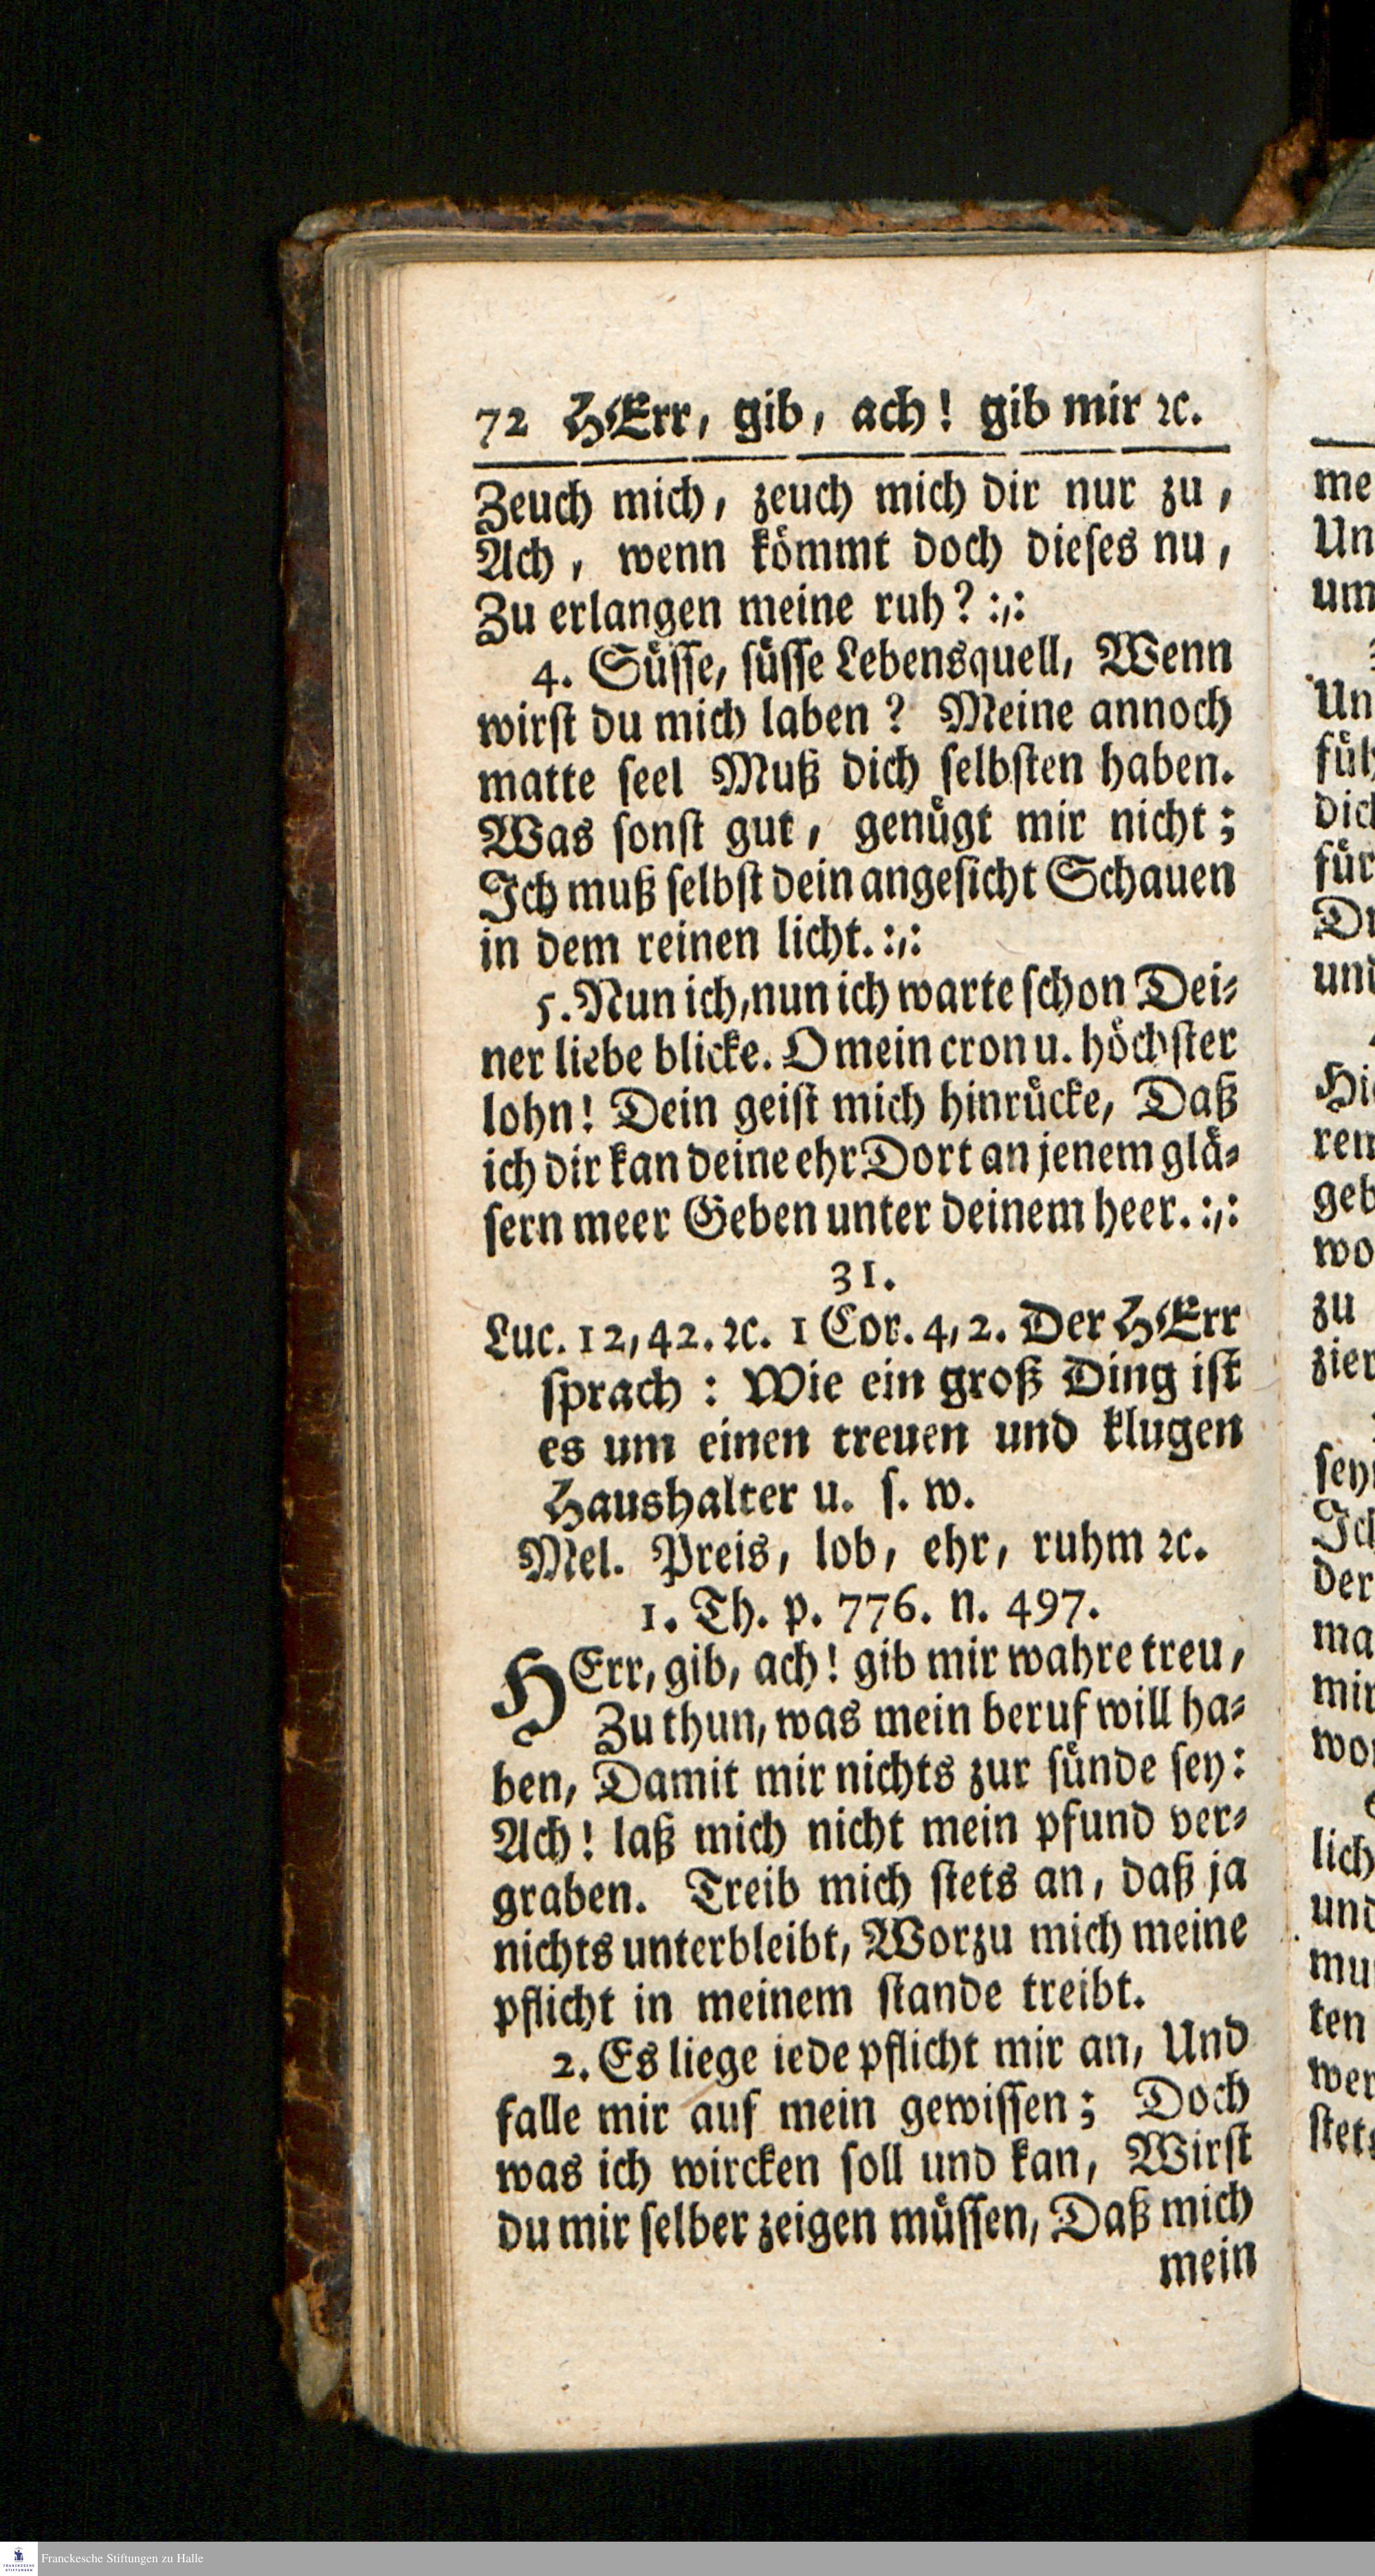 72 HErr, gib, ach! gib mir ꝛc.
Zeuch mich, zeuch mich dir nur zu,
Ach, wenn kömmt doch dieses nu,
Zu erlangen meine ruh? :,:
4. Süsse, süsse Lebensquell, Wenn
wirst du mich laben? Meine annoch
matte seel Muß dich selbsten haben.
Was sonst gut, genügt mir nicht;
Ich muß selbst dein angesicht Schauen
in dem reinen licht. :,:
5. Nun ich, nun ich warte schon Dei-
ner liebe blicke. O mein cron u. höchster
lohn! Dein geist mich hinrücke, Daß
ich dir kan deine ehr Dort an jenem glä-
sern meer Geben unter deinem heer. :,:
31.
Luc. 12, 42. ꝛc. 1 Cor. 4, 2. Der HErr
sprach: Wie ein groß Ding ist
es um einen treuen und klugen
Haushalter u. s. w.
Mel. Preis, lob, ehr, ruhm ꝛc.
1. Th. p. 776. n. 497.
HErr, gib, ach! gib mir wahre treu,
Zu thun, was mein beruf will ha-
ben, Damit mir nichts zur sünde sey:
Ach! laß mich nicht mein pfund ver-
graben. Treib mich stets an, daß ja
nichts unterbleibt, Worzu mich meine
pflicht in meinem stande treibt.
2. Es liege iede pflicht mir an, Und
falle mir auf mein gewissen; Doch
was ich wircken soll und kan, Wirst
du mir selber zeigen müssen, Daß mich
mein
Franckesche Stiftungen zu Halle